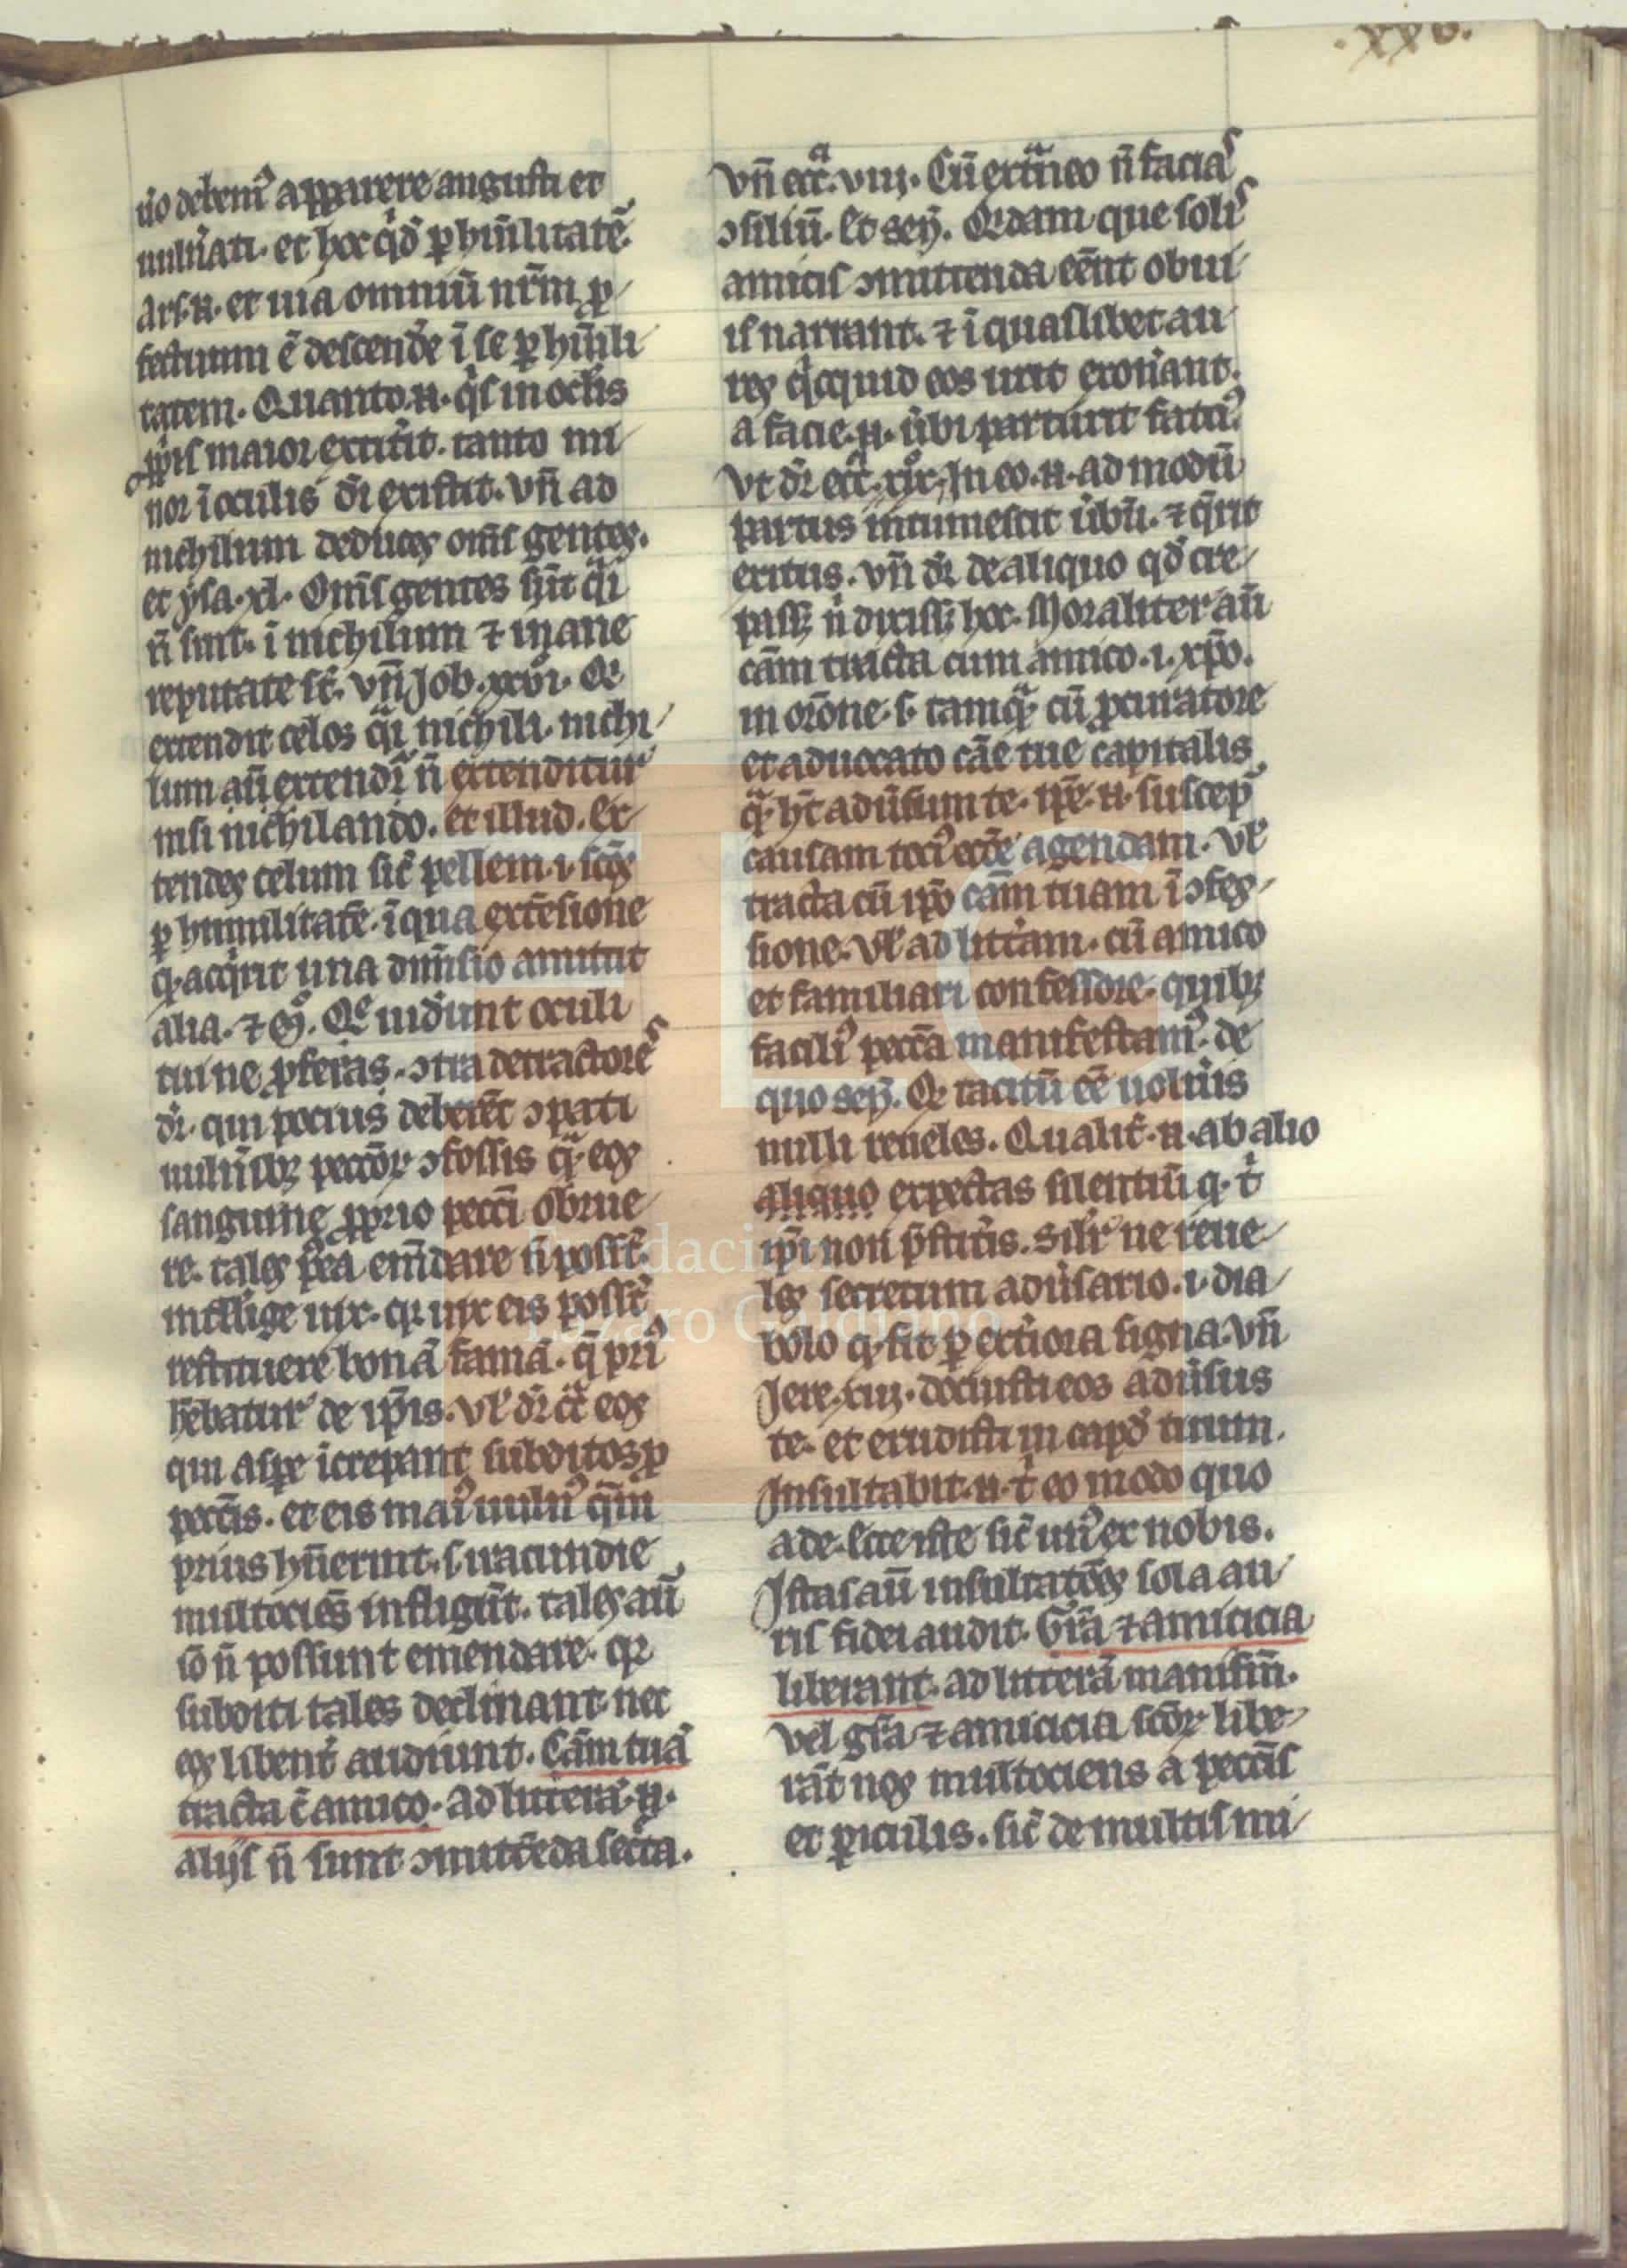 .xxv.
uo debem᷒ apparere angusti et
uuln̾ati. et hoc qͥdē ꝑ hūilitatē.
Ars .n. et uia omniū nr̄m ꝓ
fectuum ē descend̾e ī se ꝑ hūili
tatem. Quanto .n. qͥs in oclis
ꝓpriis maior extit̾it. tanto mi
nor ī oculis dī existit. vn̄ ad
nichilum deduces om̄s gentes.
et ysa. xl. Om̄s gentes sūt qͣi
n̄ sint. ī nichilum ⁊ inane
reputate sūt. vn̄ Job. xxvi. Qͥ
extendit celos qͣi nichili. nichi
lum aū extendi n̄ extenditur
nisi nichilando. et illud. Ex
tendes celum sic̄ pellem .i. scōs
ꝑ humilitatē. ī qua extēsione
q. acqͥrit una dim̄sio amittit
alia. ⁊ c̄. Qͤ uid̾unt oculi
tui ne ꝓferas. ↄtra detractores
dr̄. qui pocius deber̄et ↄpati
uuln̾ibꝫ peccōꝝ ↄfossis qͣ eos
sanguine ꝓprio pecci obrue
re. tales pꝰea em̄dare n̄ possūt.
intllige uix. qꝛ uix eis possūt
restituere bonā famā. q̄ priꝰ
hēbatur de ip̄is. Vl̾ dr̄ ↄͣ eos
qui aspe īcrepant subditos ꝓ
pecc̄is. et eis maiꝰ uulnꝰ qͣm
prius hūerint. s. iracundie
multocies infligūt. tales aū
iō n̄ possunt emendare. qꝛ
subditi tales declinant nec
eos libent̾ audiunt. Cām tuā
tracta c̄ amico. ad literā .n.
alijs n̄ sunt ↄmittēda sec̾ta.
vn̄ eccͣ. viij. Cū extͣneo n̄ facias
ↄsiliū. Et seq̄. Qͥdam que solis
amicis ↄmittenda eēnt obui
is narrant. ⁊ ī quaslibet au
res qͥcquid eos urit exon̾ant.
a facie .n. u̾bi parturit fatuꝰ
vt dr̄ eccͣ. xix. In eo .n. ad modū
partus intumescit u̾bū. ⁊ qͥrit
exitus. vn̄ dr̄ de aliquo qd̾ cre
passꝫ n̄ dixissꝫ hoc. Moraliter aū
cām tracta cum amico .i. xp̄o.
in orōne. s. tamqͣ cū ꝓcuratore
et aduocato cāe tue capitalis
qͣ h̄t adu̾sum te. ip̄e .n. suscep̄
causam tociꝰ eccē agendam. Vl̾
tracta cū ip̄o cām tuam ī ↄfes
sione. Vl̾ ad litt̾am. cū amico
et familiari confessore. quibꝫ
faciliꝰ pecc̄a manifestamꝰ. de
quo seq̄. Qͤ tacitū eē uolu̾is
nulli reueles. Qualit̾ .n. ab alio
aliquo expectas silentiū q. t̾
ip̄i non p̄stit̾is. Silr̄ ne reue
les secretum adu̾sario .i. dia
bolo q. fit ꝑ ext̾iora signa. vn̄
Jere. xiij. docuisti eos adu̾sus
te. et erudisti in capd̾ tuum.
Insultabit .n. t̾ eo modo quo
ade. Ecce iste sic̄ unꝰ ex nobis.
Istas aū insultatōes sola au
ris fidei audit. Grā ⁊ amicicia
liberant. ad litterā manifm̄.
vel gr̄a ⁊ amicicia scōꝝ libe
rāt nos multociens a pecc̄is
et ꝑiculis. sic̄ de multis mi
Fundación
Lázaro Galdiano